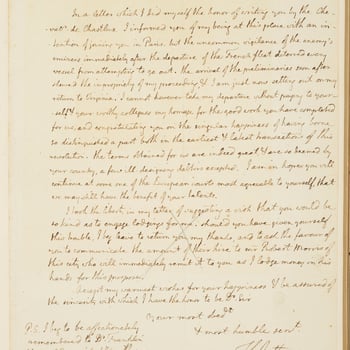 In a letter which I did myself the honor of writing you by the Che-
valr. de Chastlux I informed you of my being at this place with an in-
tention of joining you in Paris. but the uncommon vigilance of the enemy's
cruisers immediately after the departure of the French fleet deterred every
vessel from attempting to go out. the arrival of the preliminaries soon after
shewed the impropriety of my proceeding & I am just now setting out on my
return to Virginia. I cannot however take my departure without paying to your-
self & your worthy collegues my homage for the good work you have completed
for us, and congratulating you on the singular happiness of having borne
so distinguished a part both in the earliest & latest transactions of this
revolution. the terms obtained for us are indeed great & are so deemed by
your country, a few ill designing debtors excepted. I am in hopes you will
continue at some one of the European courts most agreeable to yourself, that
we may still have the benefit of your talents.
I took the liberty in my letter of suggesting a wish that you would be
so kind as to engage lodgings for me. should you have given yourself
this trouble, I beg leave to return you my thanks, and to ask the favour of
you to communicate the amount of their hire to mr Robert Morris of
this city who will immediately remit it to you as I lodge money in his
hands for this purpose.
Accept my warmest wishes for your happiness & be assured of
the sincerity with which I have the honor to be Dr Sir
Your most obedt
& most humble servt.
P.S. I beg to be affectionately
remembered to Dr Franklin